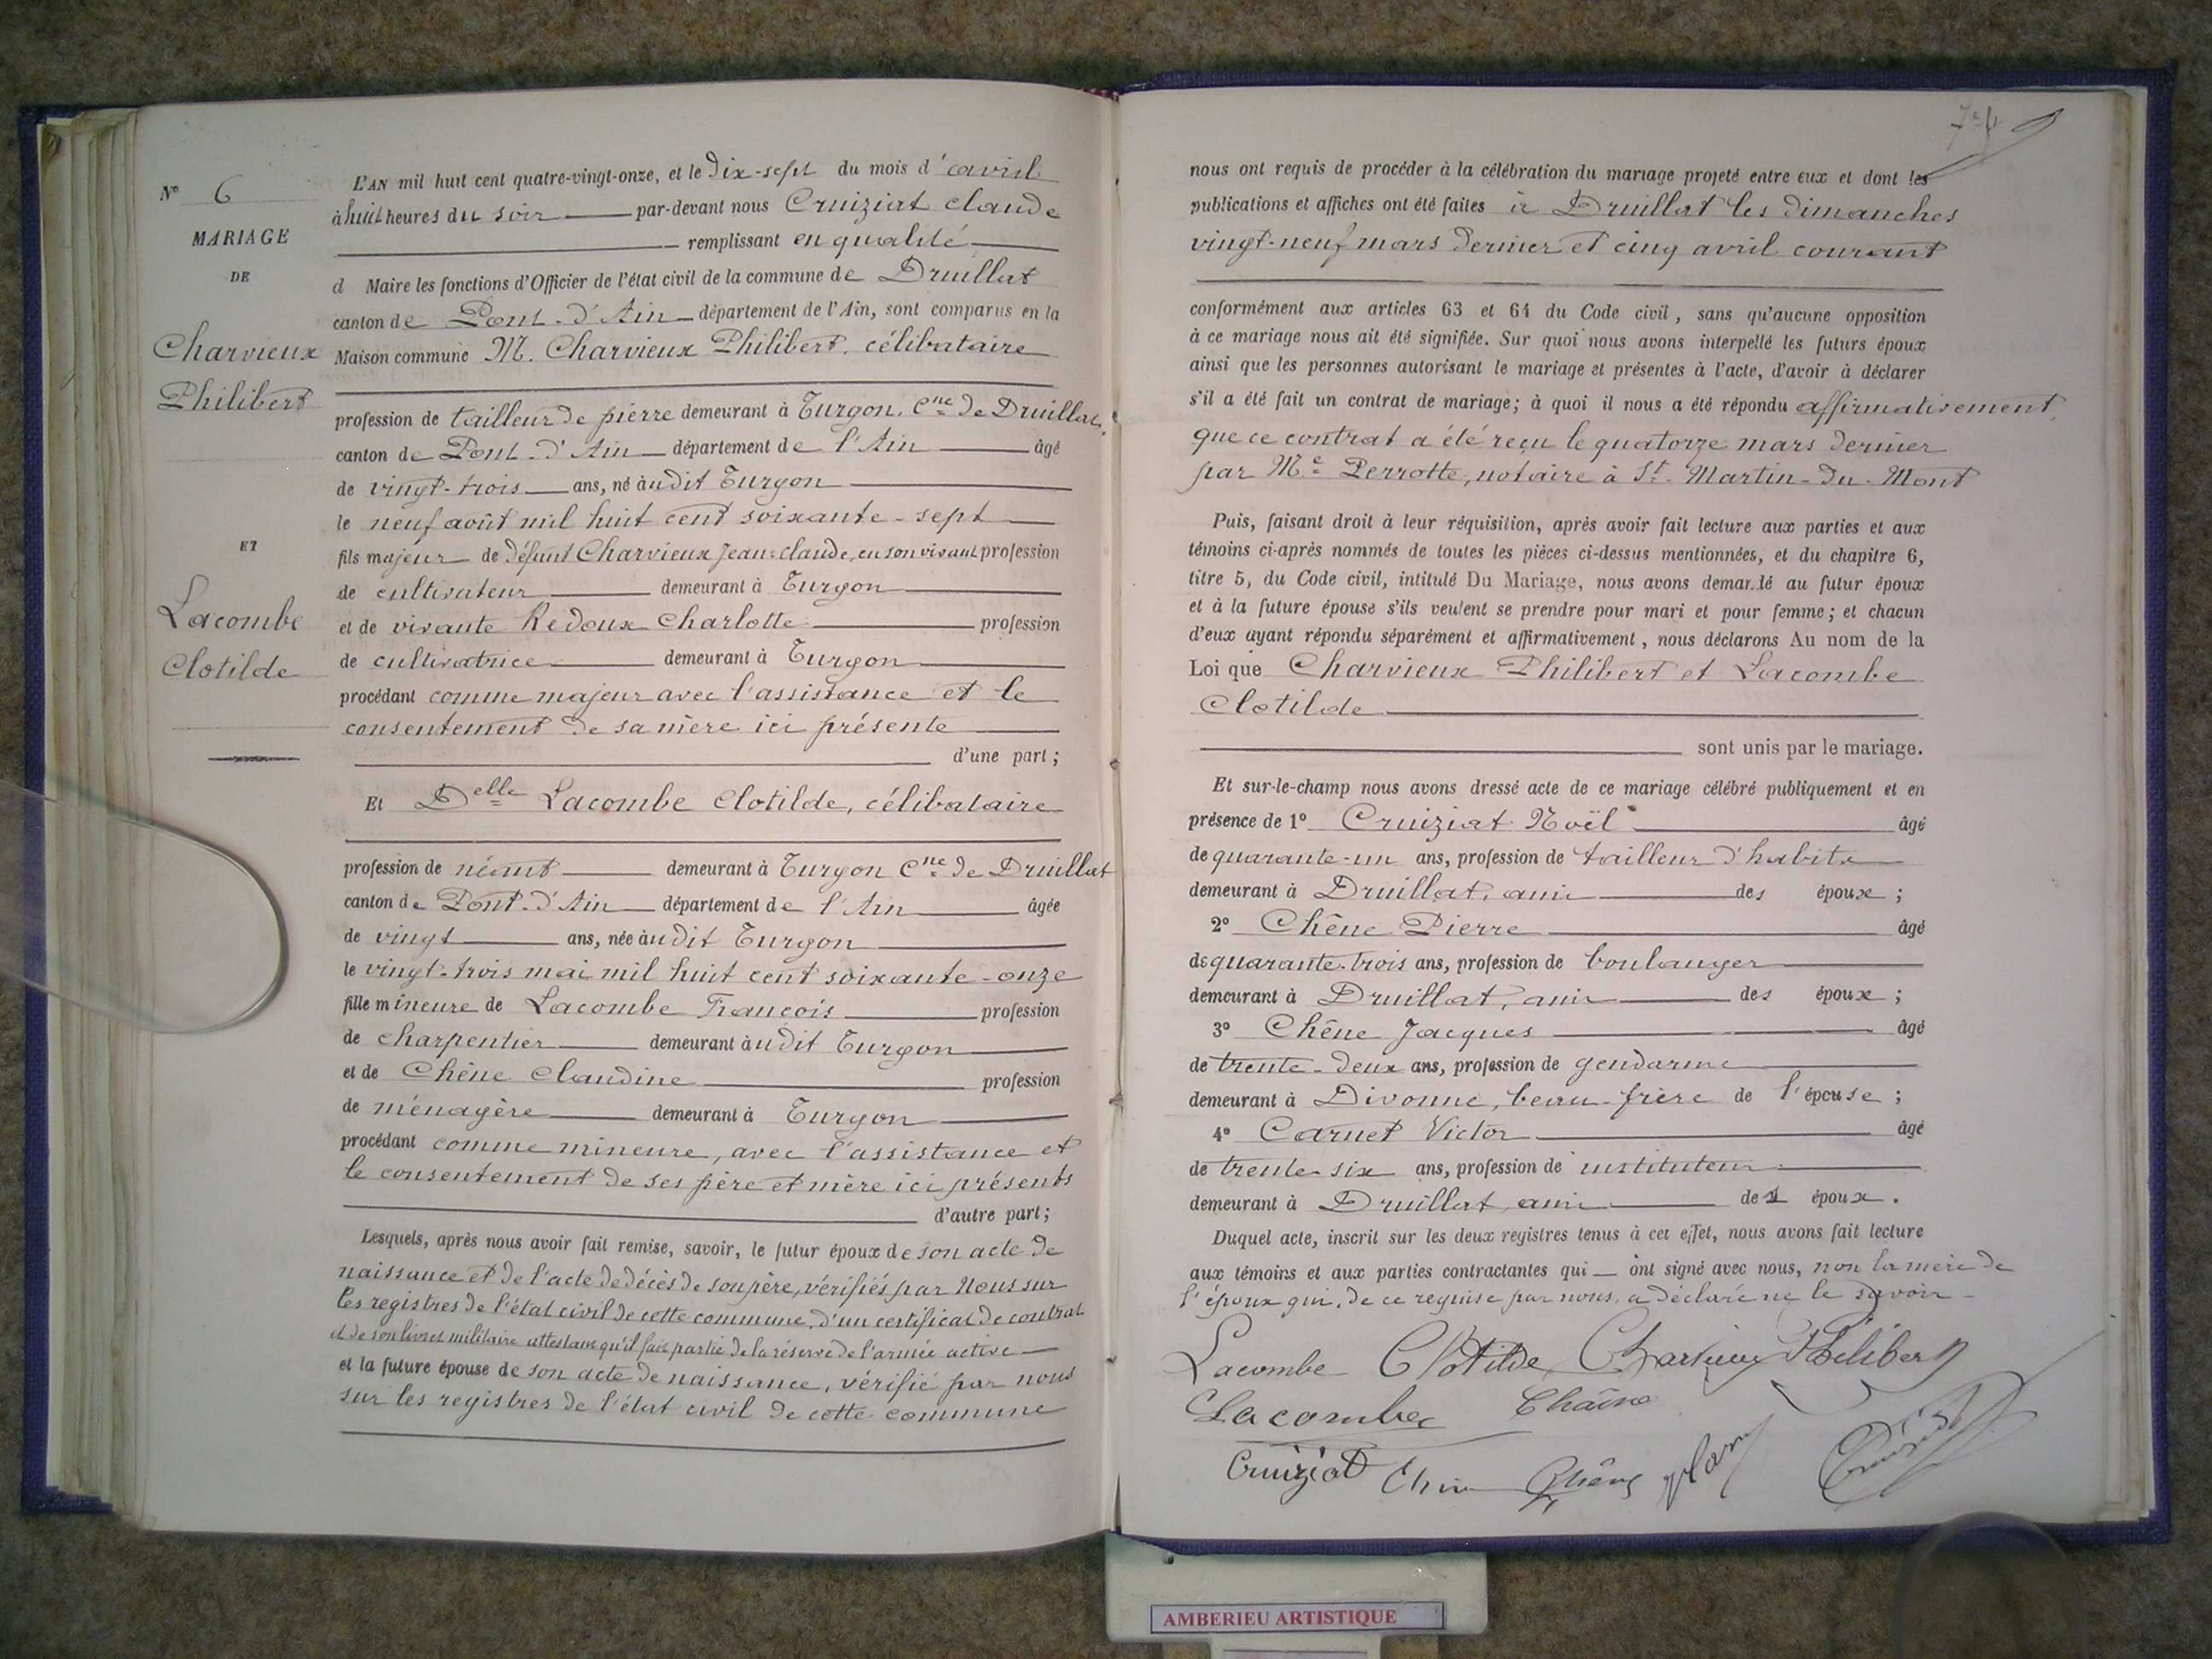 N° 6
MARIAGE
DE
Charvieux
Philibert
ET
Lacombe
Clotilde
L'AN mil huit cent quatre-vingt-onze, et le dix-sept du mois d'avril
à huit heures du soir par-devant nous Cruiziat Claude
remplissant en qualité
d Maire les fonctions d'Officier de l'état civil de la commune de Druillat
canton de Pont-d'Ain département de l'Ain, sont comparus en la
Maison commune M. Charvieux Philibert, célibataire
profession de tailleur de pierre demeurant à Turgon, Cne de Druillat,
canton de Pont-d'Ain département de l'Ain âgé
de vingt-trois ans, né audit Turgon
le neuf août mil huit cent soixante-sept
fils majeur de défunt Charvieux Jean-Claude, en son vivant profession
de cultivateur demeurant à Turgon
et de vivante Redoux Charlotte profession
de cultivatrice demeurant à Turgon
procédant comme majeur avec l'assistance et le
consentement de sa mère ici présente
d'une part ;
Et Delle Lacombe Clotilde, célibataire
profession de néant demeurant à Turgon Cne de Druillat
canton de Pont-d'Ain département de l'Ain âgée
de vingt ans, née audit Turgon
le vingt-trois mai mil huit cent soixante-onze
fille mineure de Lacombe François profession
de charpentier demeurant audit Turgon
et de Chêne Claudine profession
de ménagère demeurant à Turgon
procédant comme mineure, avec l'assistance et
le consentement de ses père et mère ici présents
d'autre part ;
Lesquels, après nous avoir fait remise, savoir, le futur époux de son acte de
naissance et de l'acte de décès de son père, vérifiés par Nous sur
les registres de l'état civil de cette commune, d'un certificat de contrat
et de son livret militaire attestant qu'il fait partie de la réserve de l'armée active
et la future épouse de son acte de naissance, vérifié par nous
sur les registres de l'état civil de cette commune
nous ont requis de procéder à la célébration du mariage projeté entre eux et dont les
publications et affiches ont été faites à Druillat les dimanches
vingt-neuf mars dernier et cinq avril courant
conformément aux articles 63 et 64 du Code civil, sans qu'aucune opposition
à ce mariage nous ait été signifiée. Sur quoi nous avons interpellé les futurs époux
ainsi que les personnes autorisant le mariage et présentes à l'acte, d'avoir à déclarer
s'il a été fait un contrat de mariage ; à quoi il nous a été répondu affirmativement,
que ce contrat a été reçu le quatorze mars dernier
par Me Perrotte, notaire à St. Martin-du-Mont
Puis, faisant droit à leur réquisition, après avoir fait lecture aux parties et aux
témoins ci-après nommés de toutes les pièces ci-dessus mentionnées, et du chapitre 6,
titre 5, du Code civil, intitulé Du Mariage, nous avons demandé au futur époux
et à la future épouse s'ils veulent se prendre pour mari et pour femme ; et chacun
d'eux ayant répondu séparément et affirmativement, nous déclarons Au nom de la
Loi que Charvieux Philibert et Lacombe
Clotilde
sont unis par le mariage.
Et sur-le-champ nous avons dressé acte de ce mariage célébré publiquement et en
présence de 1° Cruiziat Noël âgé
de quarante-un ans, profession de tailleur d'habits
demeurant à Druillat, ami des époux ;
2° Chêne Pierre âgé
de quarante-trois ans, profession de boulanger
demeurant à Druillat, ami des époux ;
3° Chêne Jacques âgé
de trente-deux ans, profession de gendarme
demeurant à Divonne, beau-frère de l'épouse ;
4° Carnet Victor âgé
de trente-six ans, profession de instituteur
demeurant à Druillat, ami des époux.
Duquel acte, inscrit sur les deux registres tenus à cet effet, nous avons fait lecture
aux témoins et aux parties contractantes qui ont signé avec nous, non la mère de
l'époux qui, de ce requise par nous, a déclaré ne le savoir
Lacombe Clotilde Charvieux Philibert
Lacombe Chaîne
Cruiziat Chêne
Cruiziat
AMBERIEU ARTISTIQUE